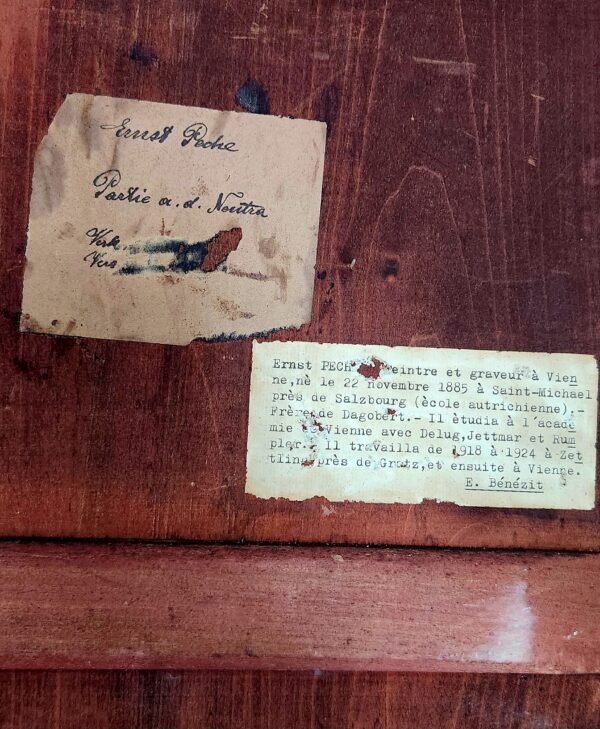 Ernst Peche
Partie a. d. Neutra
Verk.
Vers
Ernst PECH eintre et graveur à Vien
ne,nè le 22 novembre 1885 à Saint-Michael
près de Salzbourg (ècole autrichienne).-
Frère de Dagobert.- Il ètudia à l'acadé
mie Vienne avec Delug,Jettmar et Rum
pler.. Il travailla de 1918 à 1924 à Zet
tling près de Gratz,et ensuite à Vienne.
E. Bénézit